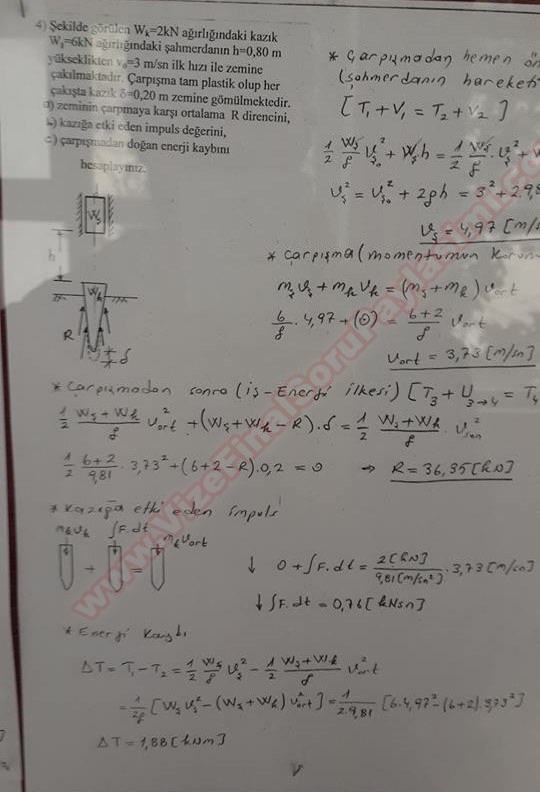 4) Şekilde görülen Wk=2kN ağırlığındaki kazık
Wş=6kN ağırlığındaki şahmerdanın h=0,80 m
yükseklikten v₀=3 m/sn ilk hızı ile zemine
çakılmaktadır. Çarpışma tam plastik olup her
çakışta kazık δ=0,20 m zemine gömülmektedir.
a) zeminin çarpmaya karşı ortalama R direncini,
b) kazığa etki eden impuls değerini,
c) çarpışmadan doğan enerji kaybını
hesaplayınız.
* Çarpışmadan hemen ön
(şahmerdanın hareketi
[T₁+V₁ = T₂+V₂]
1/2 Wş/g vş₀² + Wş h = 1/2 Wş/g vş² +
vş² = vş₀² + 2gh = 3² + 2.9,8
vş = 4,97 [m/s
Wş
h
Wk
R
δ
* Çarpışma (momentumun korun
mş vş + mk vk = (mş + mk) vort
6/g . 4,97 + (0) = 6+2/g vort
vort = 3,73 [m/sn]
* Çarpışmadan sonra (iş-Energi ilkesi) [T₃ + U₃→₄ = T₄
1/2 Wş+Wk/g vort² + (Wş+Wk-R).δ = 1/2 Wş+Wk/g . vson²
1/2 6+2/9,81 . 3,73² + (6+2-R).0,2 = 0 ⇒ R = 36,35 [kN]
* Kazığa etki eden impuls
mk vk ∫F.dt mk vort
+ =
↓ 0 + ∫F.dt = 2[kN]/9,81[m/sn²] . 3,73 [m/sn]
↓ ∫F.dt = 0,76 [kNsn]
* Energi Kaybı
ΔT = T₁ - T₂ = 1/2 Wş/g vş² - 1/2 Wş+Wk/g vort²
= 1/2g [Wş vş² - (Wş + Wk) vort²] = 1/2.9,81 [6.4,97² - (6+2).3,73²]
ΔT = 1,88 [kNm]
www.VizeFinalSoruPaylasimi.com